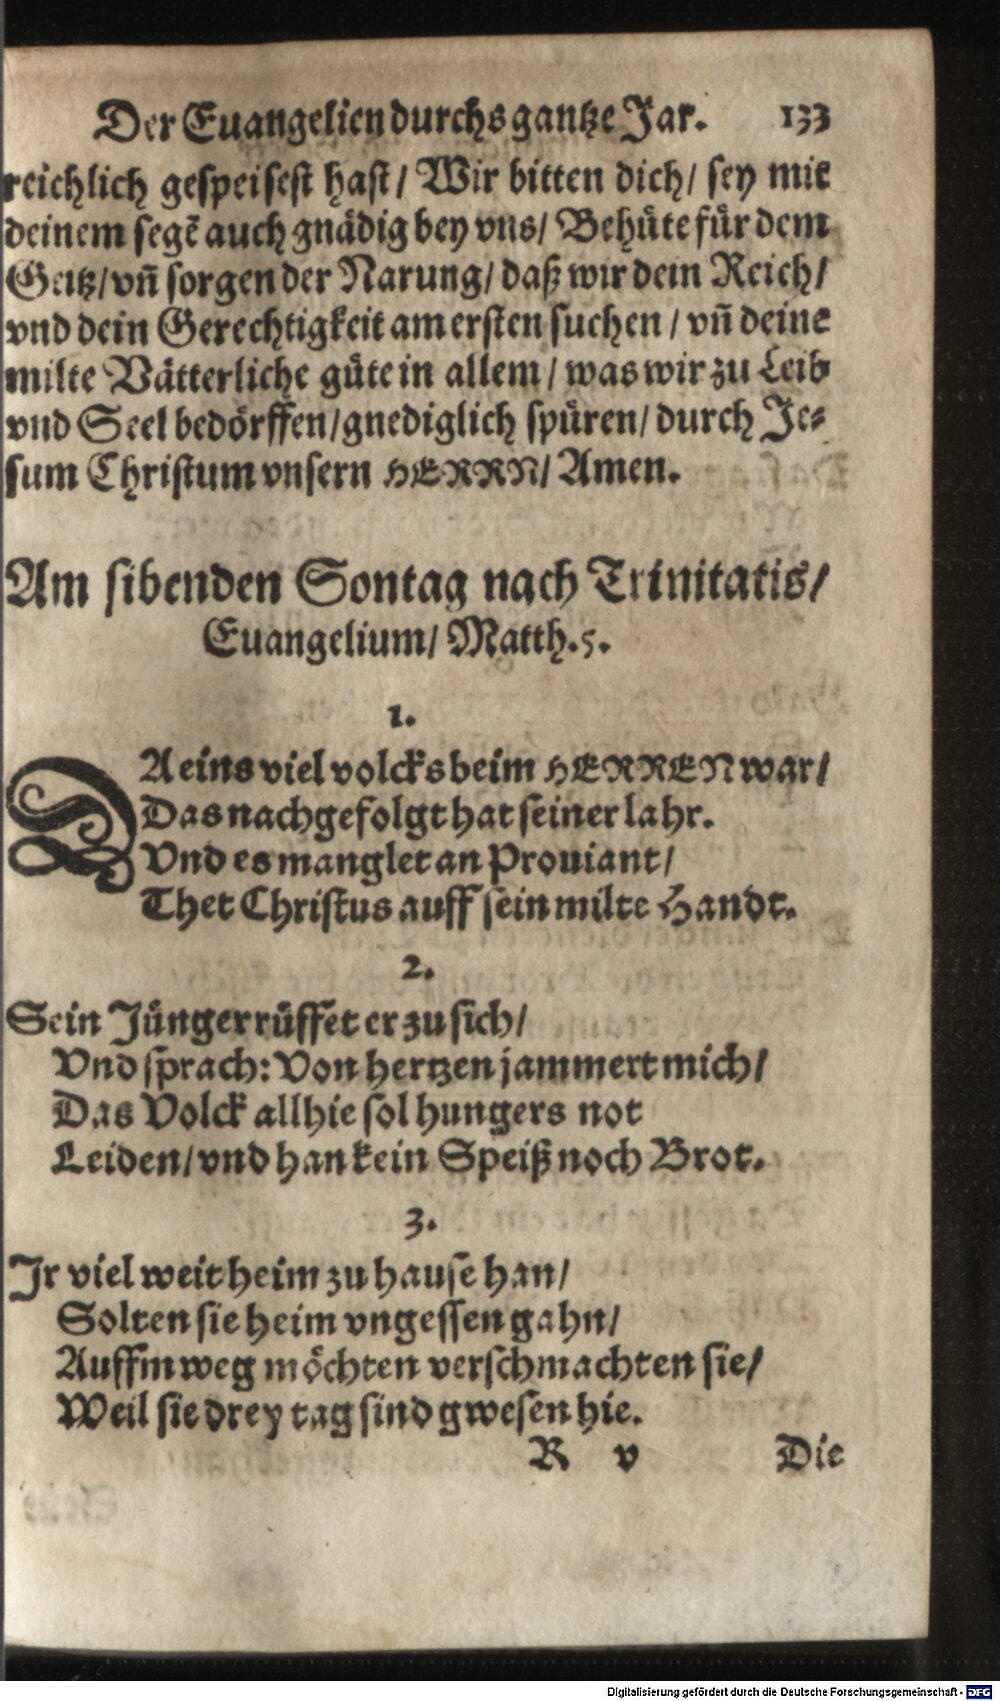 Der Euangelien durchs gantze Jar. 133
reichlich gespeisest hast/ Wir bitten dich/ sey mit
deinem segẽ auch gnädig bey vns/ Behüte für dem
Geitz/ vñ sorgen der Narung/ daß wir dein Reich/
vnd dein Gerechtigkeit am ersten suchen/ vñ deine
milte Vätterliche güte in allem/ was wir zu Leib
vnd Seel bedörffen/ gnediglich spüren/ durch Je-
sum Christum vnsern HERRN/ Amen.
Am sibenden Sontag nach Trinitatis/
Euangelium/ Matth. 5.
1.
DA eins viel volcks beim HERREN war/
Das nachgefolgt hat seiner lahr.
Vnd es manglet an Prouiant/
Thet Christus auff sein milte Handt.
2.
Sein Jünger rüffet er zu sich/
Vnd sprach: Von hertzen jammert mich/
Das Volck allhie sol hungers not
Leiden/ vnd han kein Speiß noch Brot.
3.
Jr viel weit heim zu hause han/
Solten sie heim vngessen gahn/
Auffm weg möchten verschmachten sie/
Weil sie drey tag sind gwesen hie.
R v Die
Digitalisierung gefördert durch die Deutsche Forschungsgemeinschaft - DFG